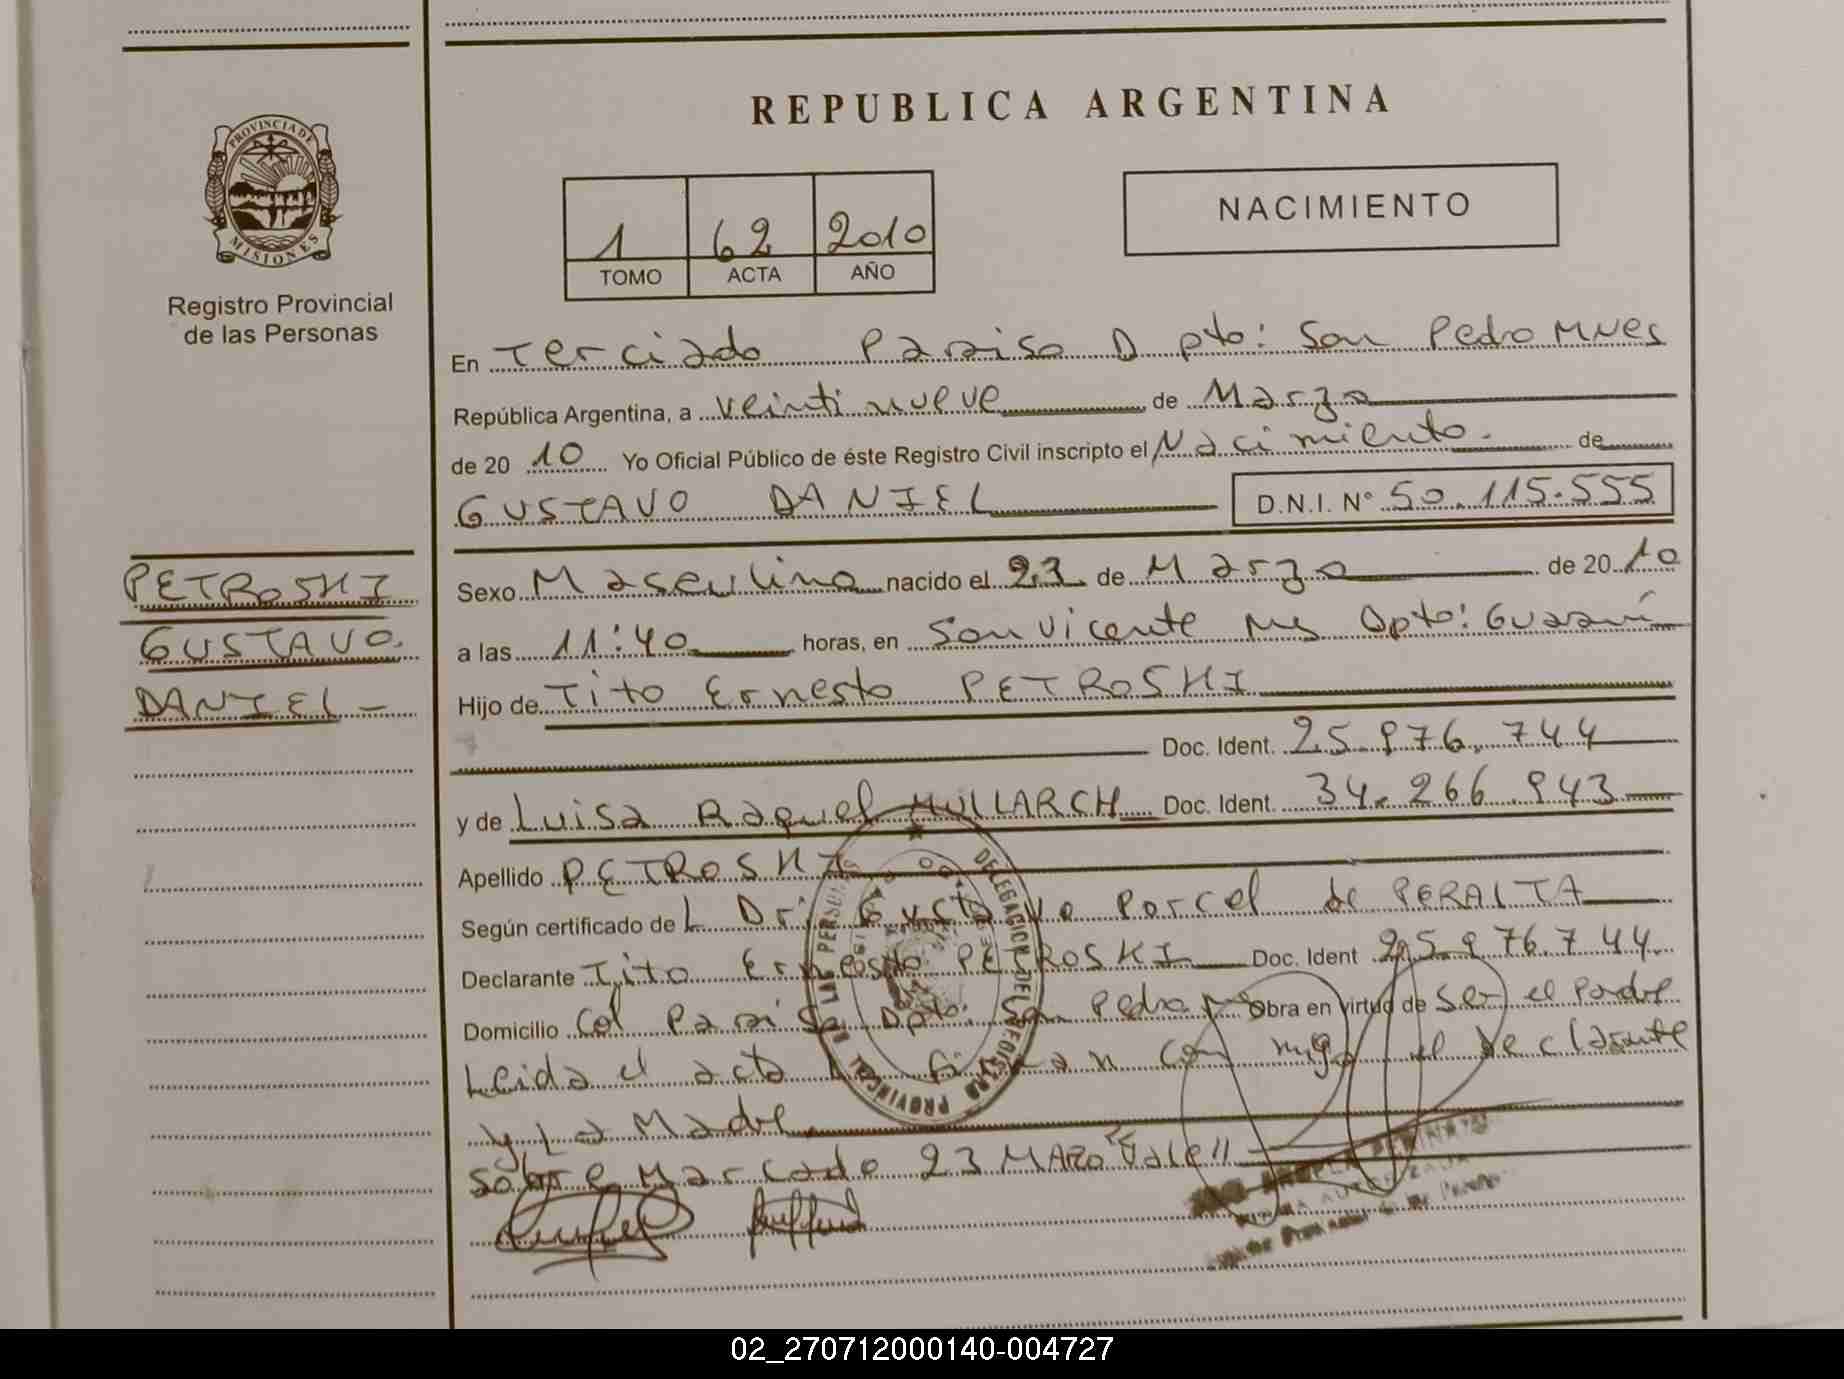 REPUBLICA ARGENTINA
PROVINCIA DE
MISIONES
Registro Provincial
de las Personas
1 62 2010
TOMO ACTA AÑO
NACIMIENTO
En Terciado Paraiso Dpto: San Pedro Mnes
República Argentina, a veintinueve de Marzo
de 2010 Yo Oficial Público de éste Registro Civil inscripto el Nacimiento. de
GUSTAVO DANIEL D.N.I. Nº 50.115.555
PETROSKI
GUSTAVO
DANIEL -
Sexo Masculino nacido el 23 de Marzo de 2010
a las 11:40 horas, en San Vicente Ms Dpto: Guaraní
Hijo de Tito Ernesto PETROSKI
Doc. Ident. 25.976.744
y de Luisa Raquel MULLARCH Doc. Ident. 34.266.943
Apellido PETROSKI
Según certificado del Dr: Gustavo Porcel de PERALTA
Declarante Tito Ernesto PETROSKI Doc. Ident 25.976.744
Domicilio Col Paraiso Dpto: San Pedro Ms Obra en virtud de ser el Padre
Leida el acta la firman conmigo el declarante
y la Madre
sobre Marcado 23 MARZO "Vale"
DELEGACION DEL REGISTRO PROVINCIAL DE LAS PERSONAS
02_270712000140-004727